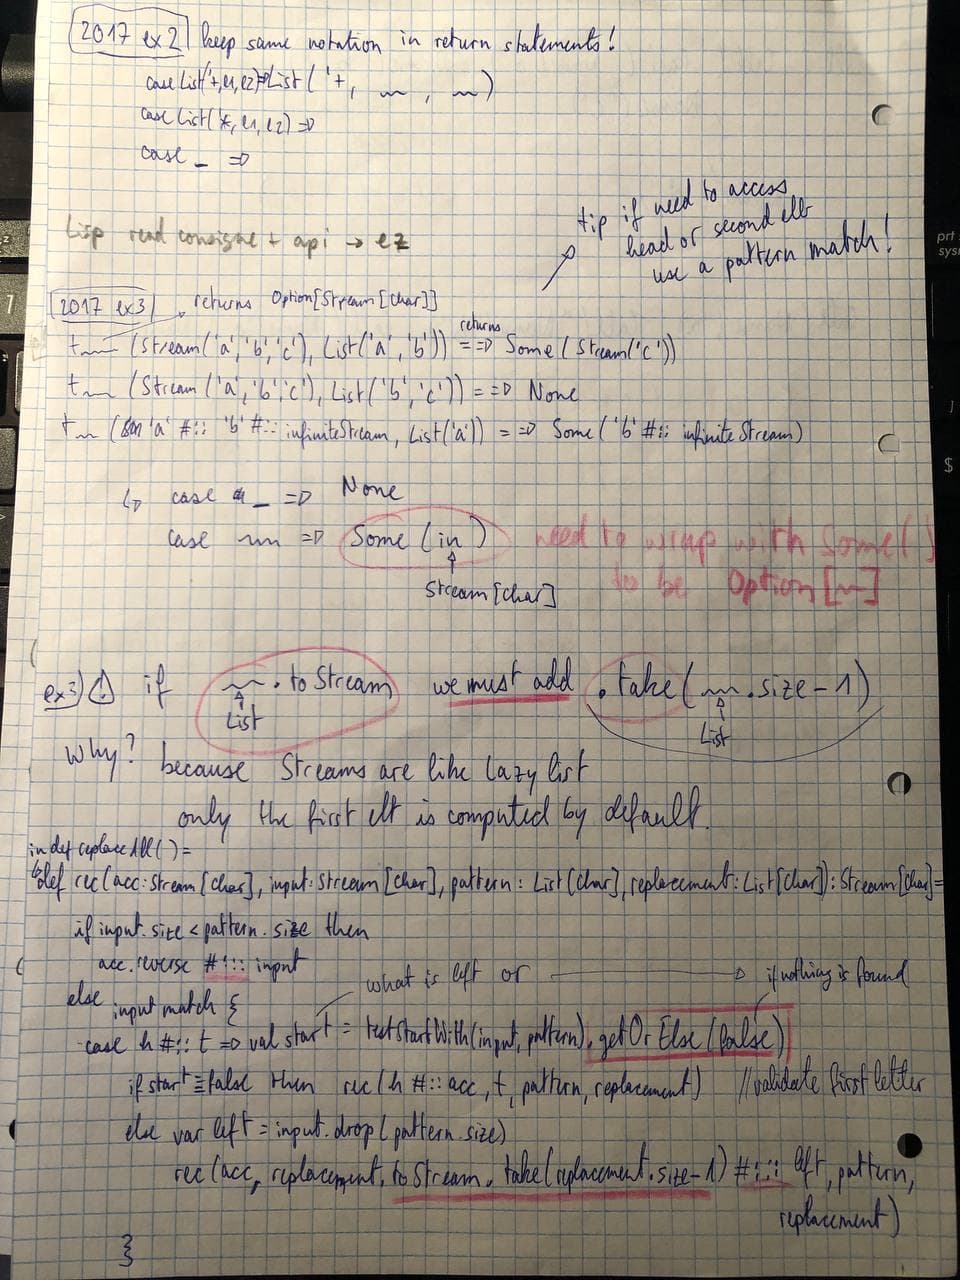 2017 ex2 keep same notation in return statements!
case List('+, e1, e2) => List('+, ~~, ~~)
case List('*, e1, e2) =>
case _ =>
tip if need to access
head or second elt
use a pattern match!
Lisp read consigne + api → ez
2017 ex3 returns Option[Stream[Char]]
returns
t~~ (Stream('a', 'b', 'c'), List('a', 'b')) = => Some(Stream('c'))
t~~ (Stream('a', 'b', 'c'), List('b', 'c')) = => None
t~~ ('a' #:: 'b' #:: infiniteStream, List('a')) = => Some('b' #:: infiniteStream)
↳ case _ => None
case ~~ => Some(in) need to wrap with Some()
to be Option[~]
Stream[Char]
ex3) ! if ~~.toStream we must add .take(~~.size-1)
List List
Why? because Streams are like lazy list
only the first elt is computed by default.
in def replaceAll() =
↳ def rec(acc: Stream[Char], input: Stream[Char], pattern: List[Char], replacement: List[Char]): Stream[Char] =
if input.size < pattern.size then
acc.reverse #::: input
what is left or → if nothing is found
else input match {
case h #:: t => val start = testStartWith(input, pattern).getOrElse(false)
if start == false then rec(h #:: acc, t, pattern, replacement) // validate first letter
else var left = input.drop(pattern.size)
rec(acc, replacement.toStream.take(replacement.size-1) #::: left, pattern,
replacement)
}
prt
sys
7
$